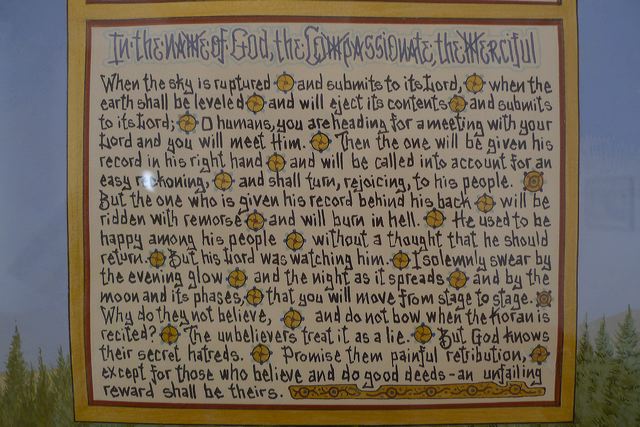 In the name of God, the Compassionate, the Merciful
When the sky is ruptured and submits to its Lord, when the
earth shall be leveled and will eject its contents and submits
to its Lord; O humans, you are heading for a meeting with your
Lord and you will meet Him. Then the one will be given his
record in his right hand and will be called into account for an
easy reckoning, and shall turn, rejoicing, to his people.
But the one who is given his record behind his back will be
ridden with remorse and will burn in hell. He used to be
happy among his people without a thought that he should
return. But his Lord was watching him. I solemnly swear by
the evening glow and the night as it spreads and by the
moon and its phases, that you will move from stage to stage.
Why do they not believe, and do not bow when the Koran is
recited? The unbelievers treat it as a lie. But God knows
their secret hatreds. Promise them painful retribution,
except for those who believe and do good deeds-an unfailing
reward shall be theirs.